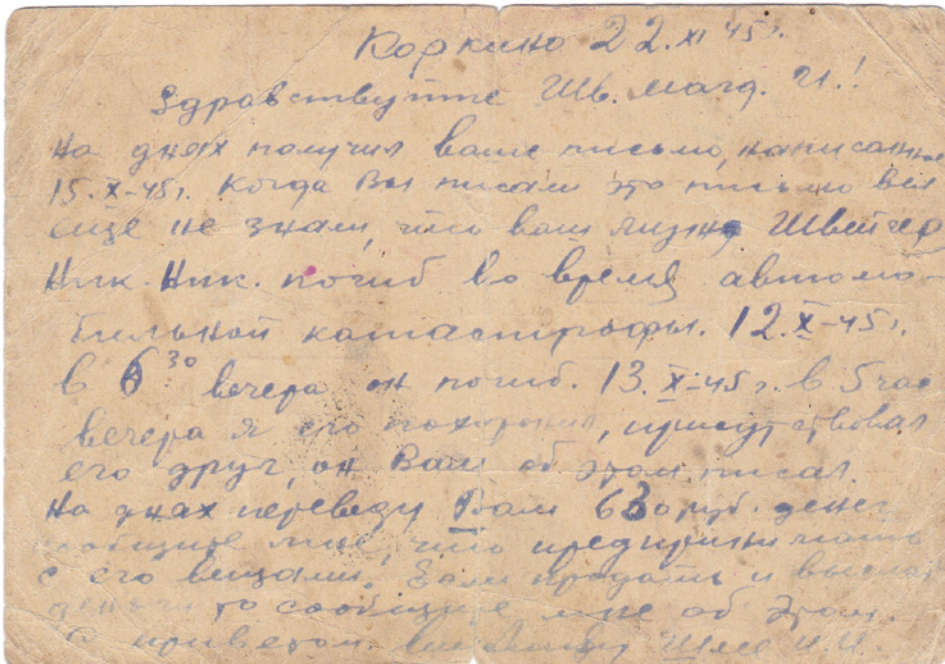 Коркино 22.XI 45г.
Здравствуйте Шв. Магд. И.!
На днях получил ваше письмо, написанное
15.X-45г. Когда Вы писали это письмо вы
еще не знали, что ваш муж Швейцер
Ник. Ник. погиб во время автомо-
бильной катастрофы. 12.X-45г.
в 6 30 вечера он погиб. 13.X-45г. в 5 час
вечера я его похоронил, присутствовал
его друг, он Вам об этом писал.
На днях переведу Вам 630 руб. денег
сообщите мне, что предпринимать
с его вещами. Если продать и выслать
деньги то сообщите мне об этом.
С приветом